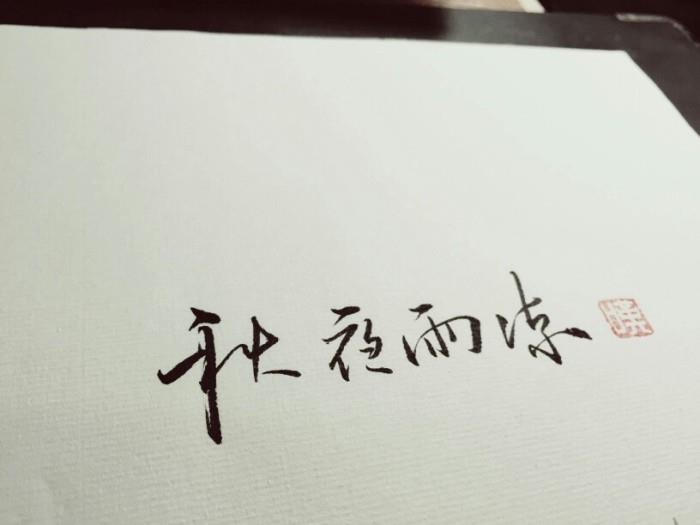 秋夜雨凉